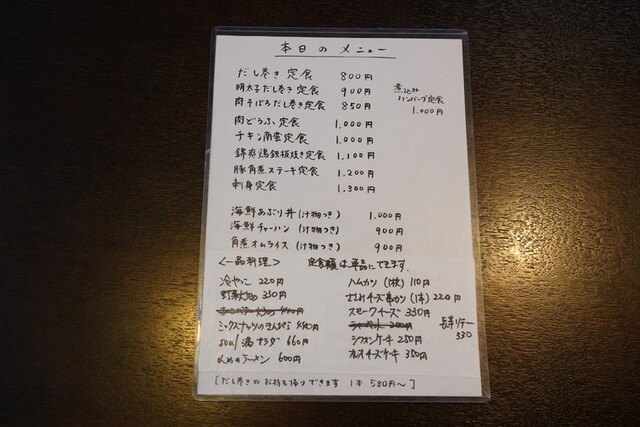 本日のメニュー
だし巻き定食 800円
明太子だし巻き定食 900円
肉そぼろだし巻き定食 850円
肉どうふ定食 1,000円
チキン南蛮定食 1,000円
錦爽鶏鉄板焼き定食 1,100円
豚角煮ステーキ定食 1,200円
刺身定食 1,300円
煮込み
ハンバーグ定食
1,000円
海鮮あぶり丼(汁物つき) 1,000円
海鮮チャーハン(汁物つき) 900円
角煮オムライス(汁物つき) 900円
<一品料理> 定食類は単品にできます。
冷やっこ 220円
330円
440円
ミックスナッツのきんぴら 440円
サラダ 660円
ラーメン 600円
ハムカツ(1枚) 110円
ささみチーズ串カツ(1本) 220円
スモークチーズ 330円
シャーベット 200円
シフォンケーキ 250円
チーズケーキ 350円
330
[だし巻きのお持ち帰りできます 1本 580円〜]